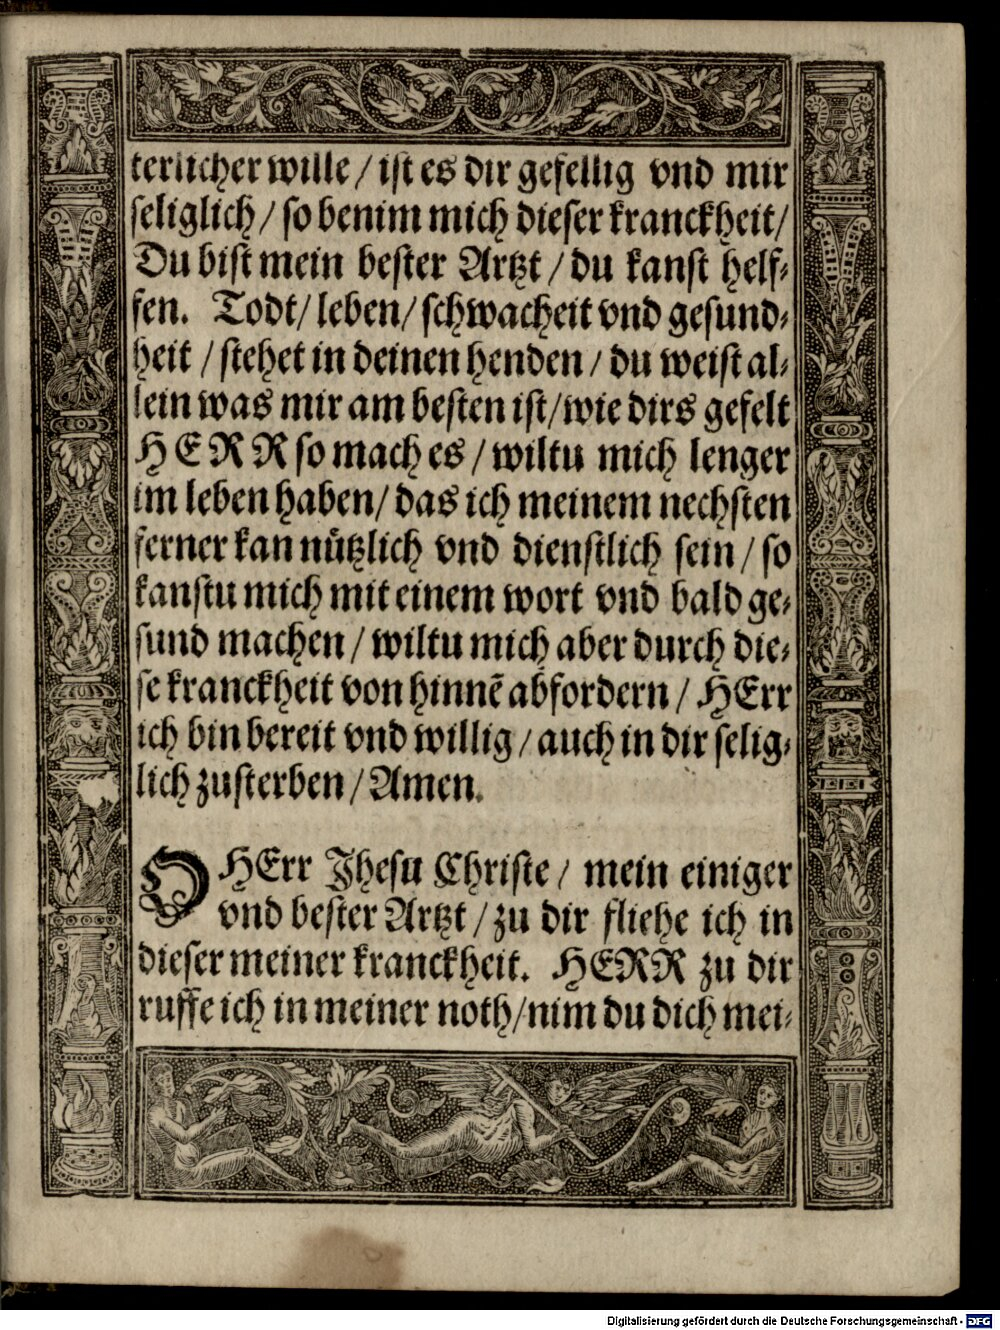 terlicher wille / ist es dir gefellig vnd mir
seliglich / so benim mich dieser kranckheit /
Du bist mein bester Artzt / du kanst helf⸗
fen. Todt / leben / schwacheit vnd gesund⸗
heit / stehet in deinen henden / du weist al⸗
lein was mir am besten ist / wie dirs gefelt
HERR so mach es / wiltu mich lenger
im leben haben / das ich meinem nechsten
ferner kan nützlich vnd dienstlich sein / so
kanstu mich mit einem wort vnd bald ge⸗
sund machen / wiltu mich aber durch die⸗
se kranckheit von hinnē abfordern / HErr
ich bin bereit vnd willig / auch in dir selig⸗
lich zusterben / Amen.
O HErr Jhesu Christe / mein einiger
vnd bester Artzt / zu dir fliehe ich in
dieser meiner kranckheit. HERR zu dir
ruffe ich in meiner noth / nim du dich mei⸗
Digitalisierung gefördert durch die Deutsche Forschungsgemeinschaft - DFG